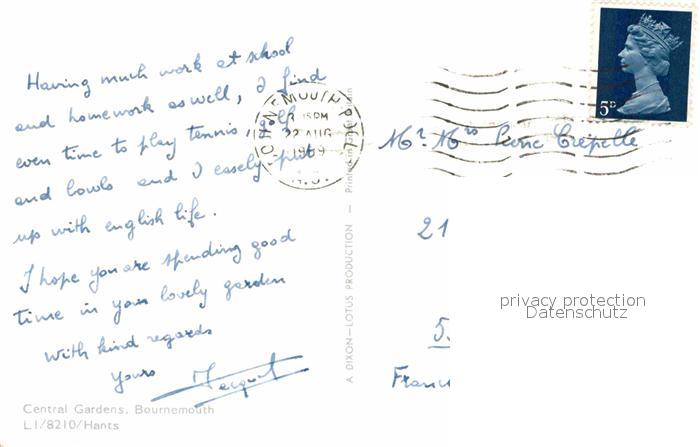 Having much work at school
and homework as well, I find
even time to play tennis golf
and bowls and I easely put
up with english life.
I hope you are spending good
time in your lovely garden
With kind regards
Yours
Central Gardens, Bournemouth
L1/8210/Hants
A DIXON-LOTUS PRODUCTION — Printed in
BOURNEMOUTH
15 PM
22 AUG
1969
5D
Mr Mrs Pierre Crepelle
21
5.
Franc
privacy protection
Datenschutz